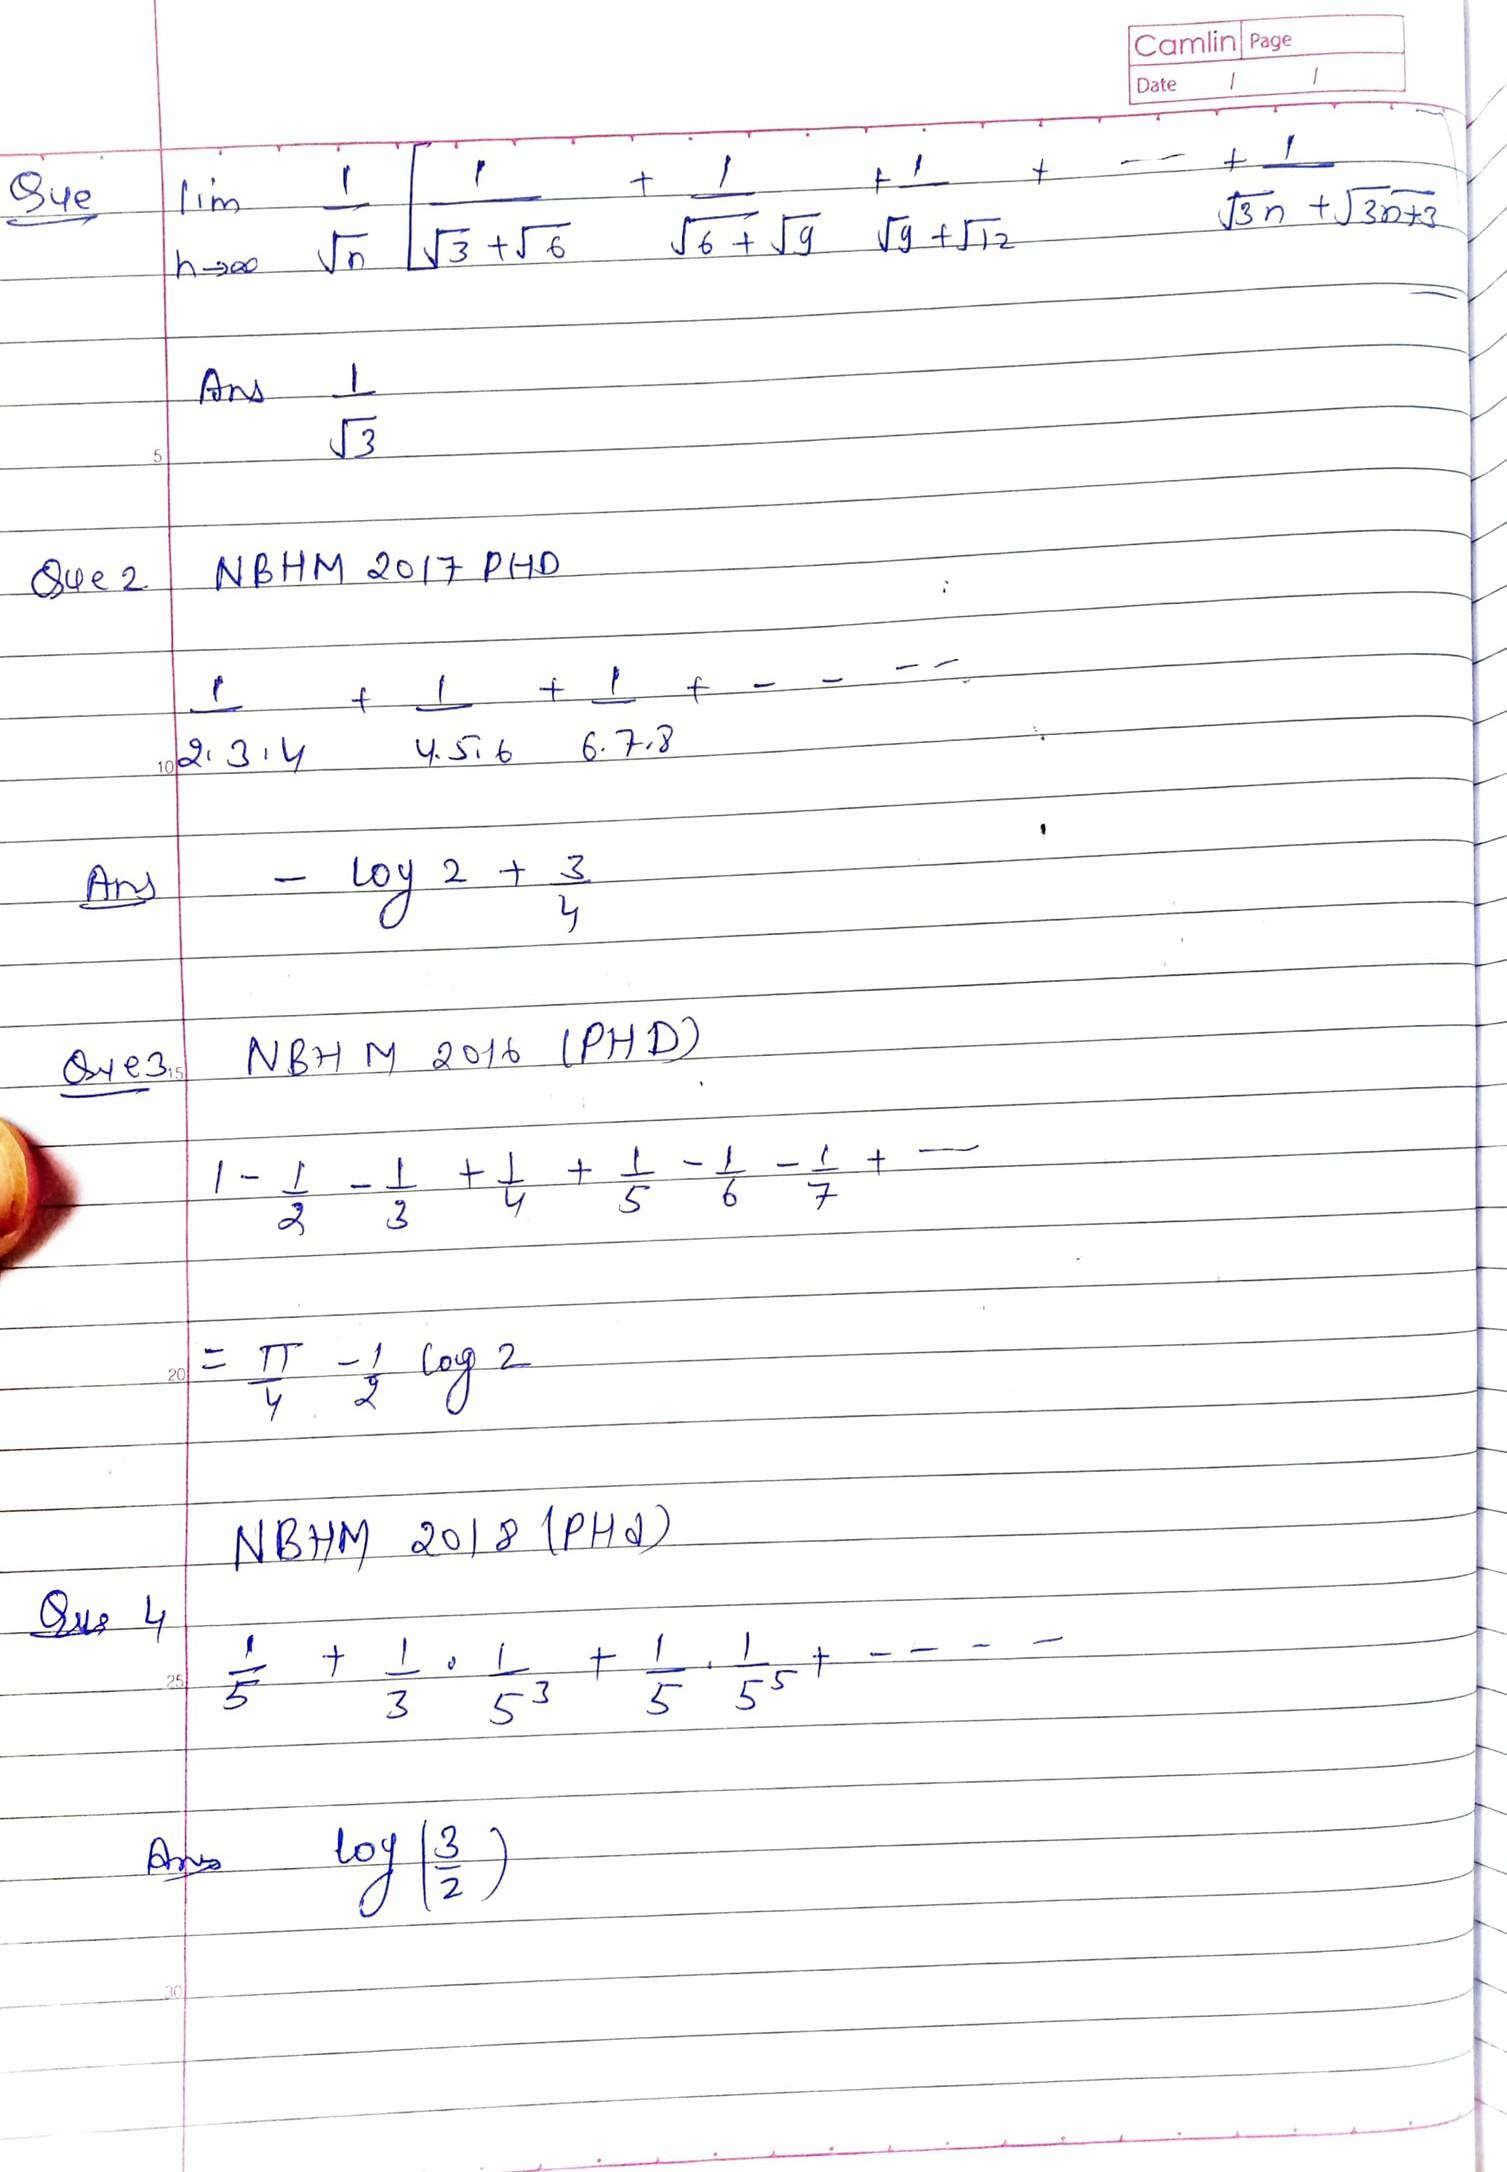 Camlin Page
Date / /
Que lim n→∞ 1/√n [ 1/(√3+√6) + 1/(√6+√9) + 1/(√9+√12) + --- + 1/(√3n+√3n+3)
Ans 1/√3
5
Que 2 NBHM 2017 PHD
1/2.3.4 + 1/4.5.6 + 1/6.7.8 + - - - -
10
Ans - log 2 + 3/4
Que 3 NBHM 2016 (PHD)
15
1 - 1/2 - 1/3 + 1/4 + 1/5 - 1/6 - 1/7 + —
= π/4 - 1/2 log 2
20
NBHM 2018 (PHd)
Que 4
1/5 + 1/3 . 1/5³ + 1/5 . 1/5⁵ + - - - -
25
Ans log (3/2)
30